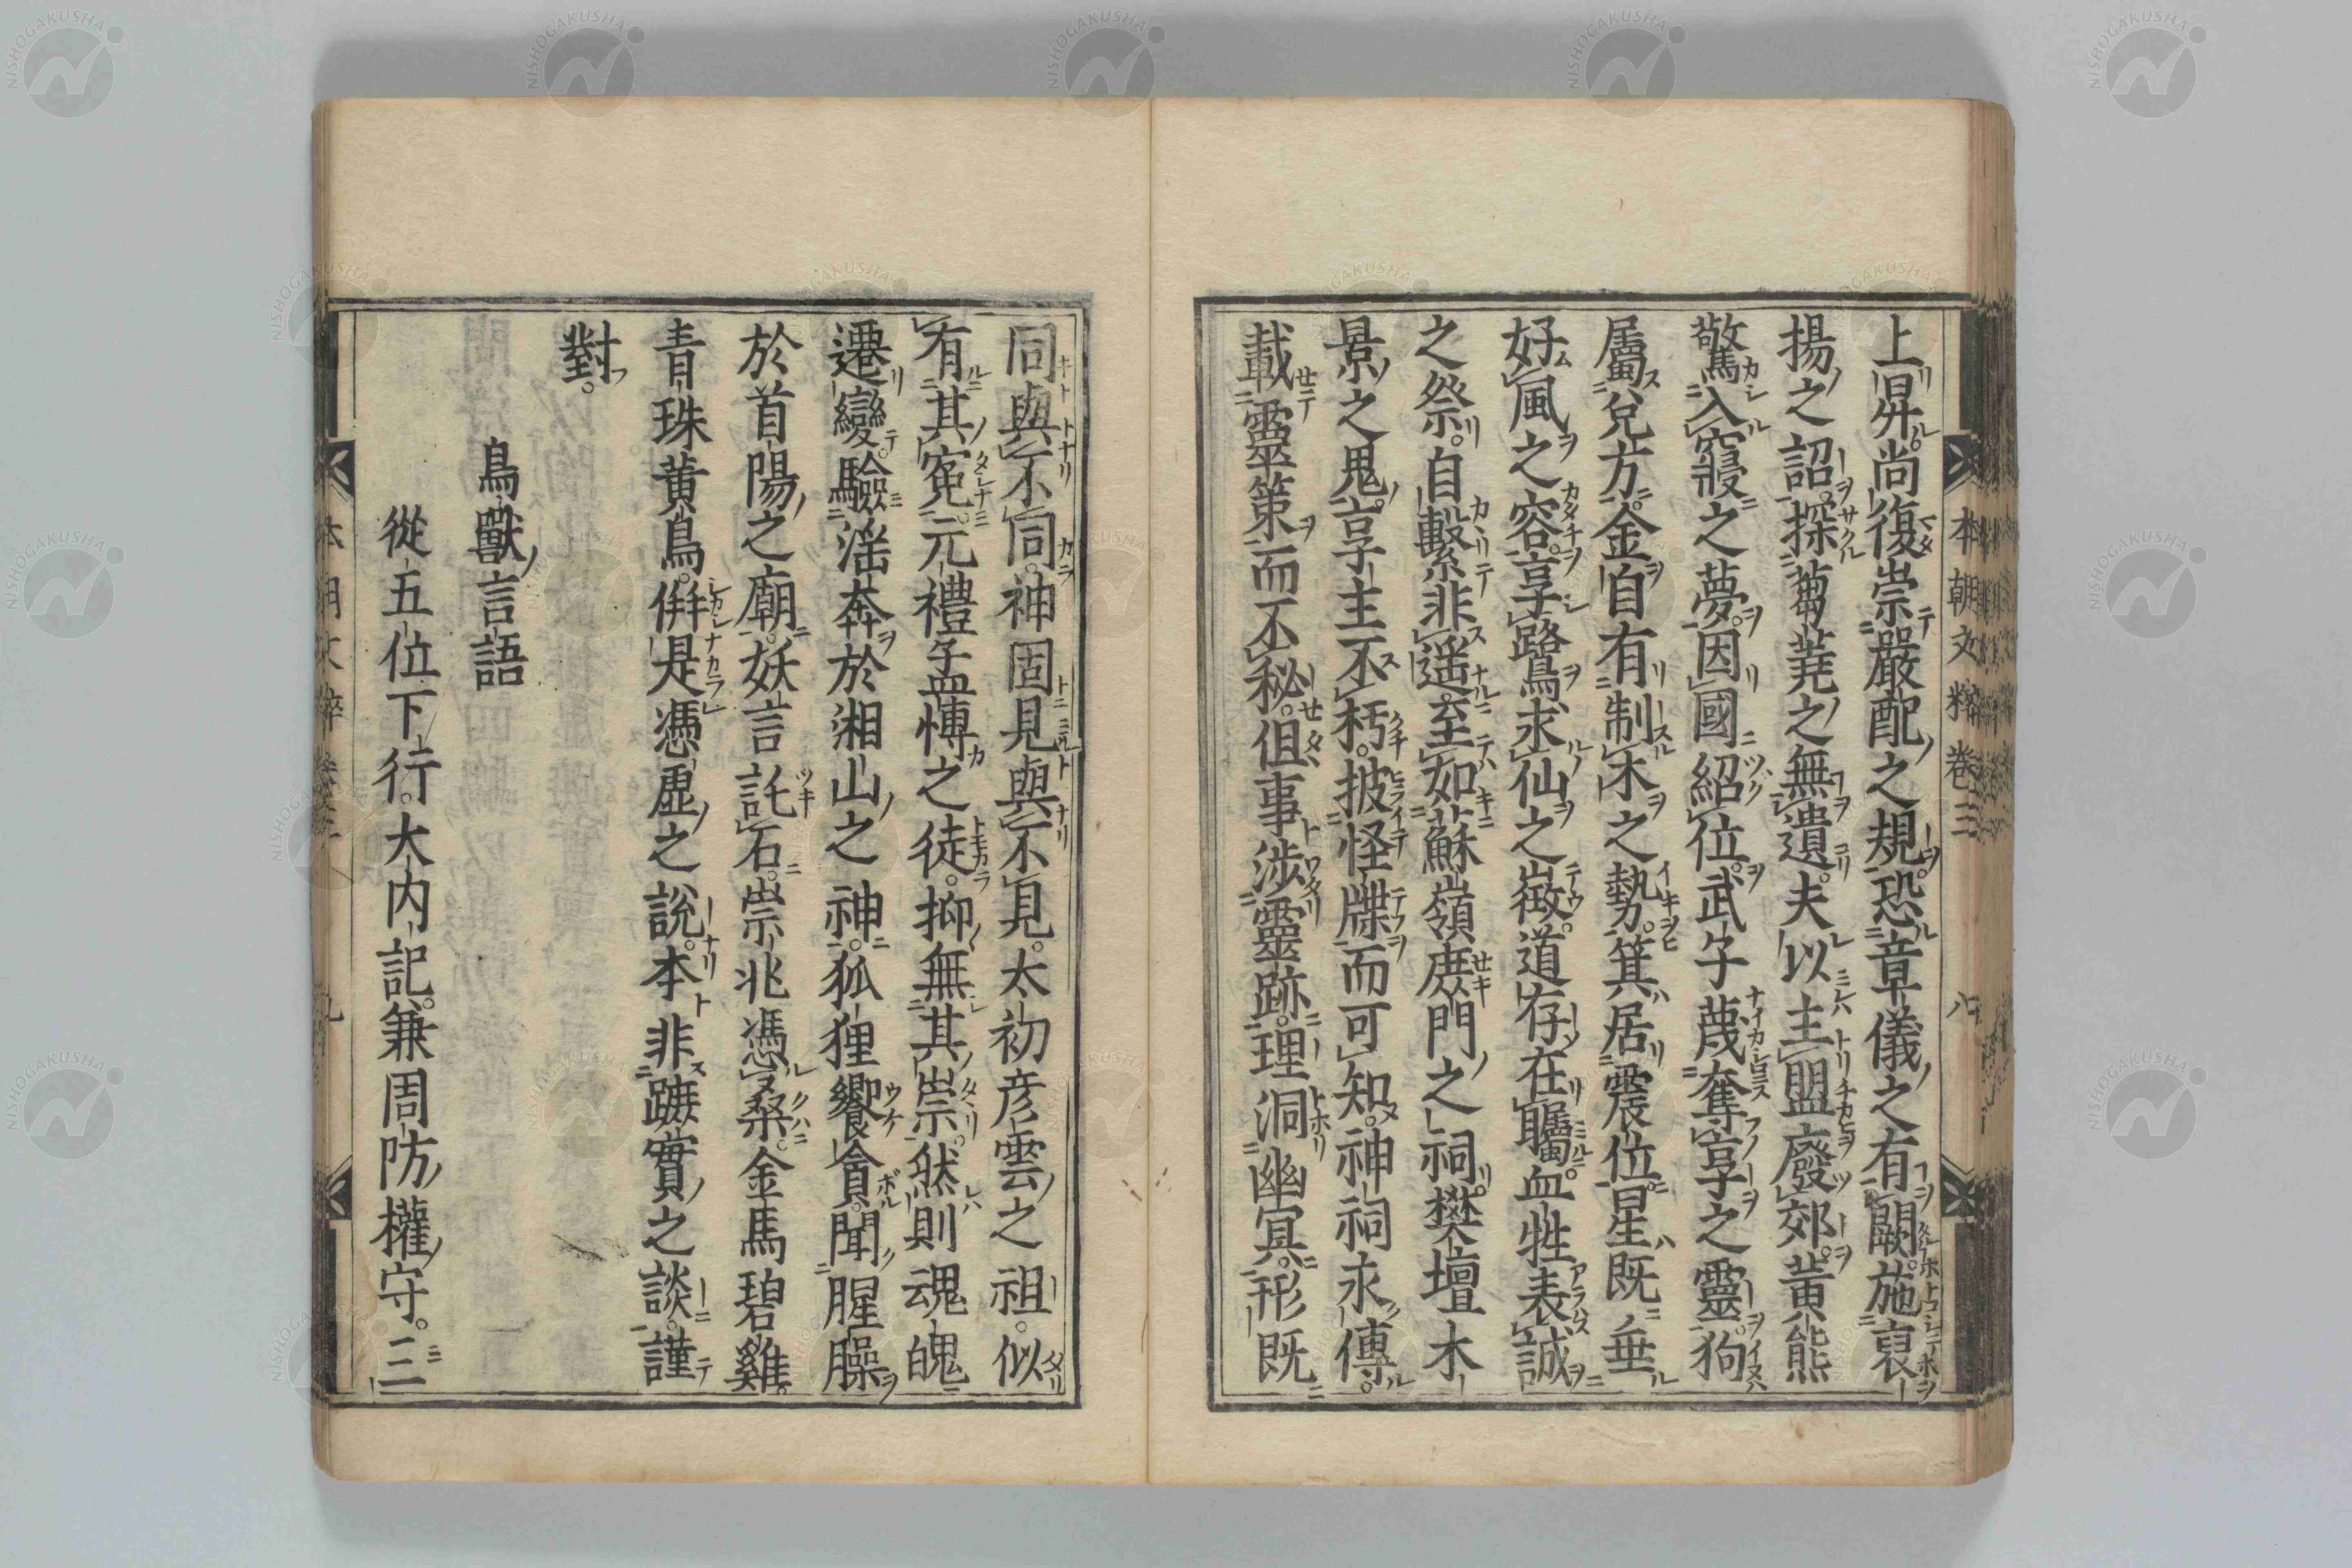 上昇。尚復崇嚴配之規。恐章儀之有闕。施裒
揚之詔。探蒭蕘之無遺。夫以主盟廢郊。黃熊
驚入寢之夢。因國紹位。武子蔑奪享之靈。狗
屬兌方。金自有制木之勢。箕居震位。星既垂
好風之容。享鷺求仙之徵。道存在矚。血牲表誠
之祭。自繫非遥。至如蘇嶺廘門之祠。樊壇木
景之鬼。享主不朽。披怪牒而可知。神祠永傳。
載靈策而不秘。但事涉靈跡。理洞幽冥。形既
本朝文粹卷三 八
同與不同。神固見與不見。太初彦雲之祖。似
有其寃。元禮孟博之徒。抑無其祟。然則魂魄
遷變。驗淫奔於湘山之神。狐狸饗貪。聞腥臊
於首陽之廟。妖言託石。祟兆憑桑。金馬碧雞。
青珠黃鳥。併是憑虛之說。本非蹠實之談。謹
對。
鳥獸言語
從五位下行。大内記。兼周防權守。三